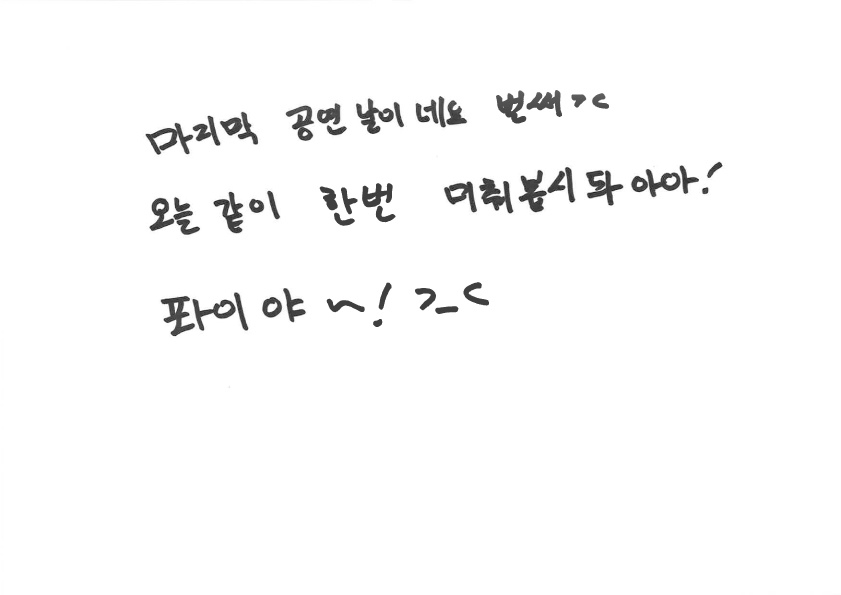 마지막 공연 날이네요 벌써><
오늘 같이 한번 머취봅시돠아아!
퐈이야~! >_<